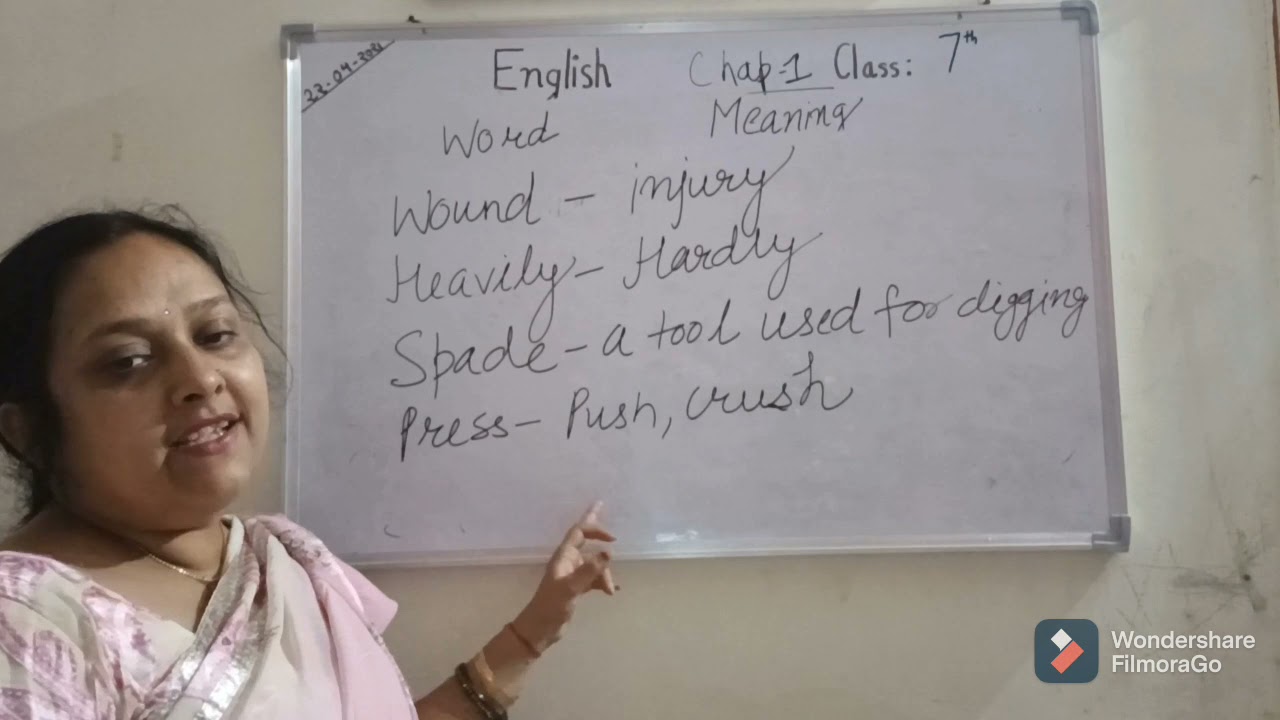 22-04-2021
English Chap-1 Class: 7th
Word Meaning
Wound - injury
Heavily - Hardly
Spade - a tool used for digging
Press - Push, crush
Wondershare
FilmoraGo